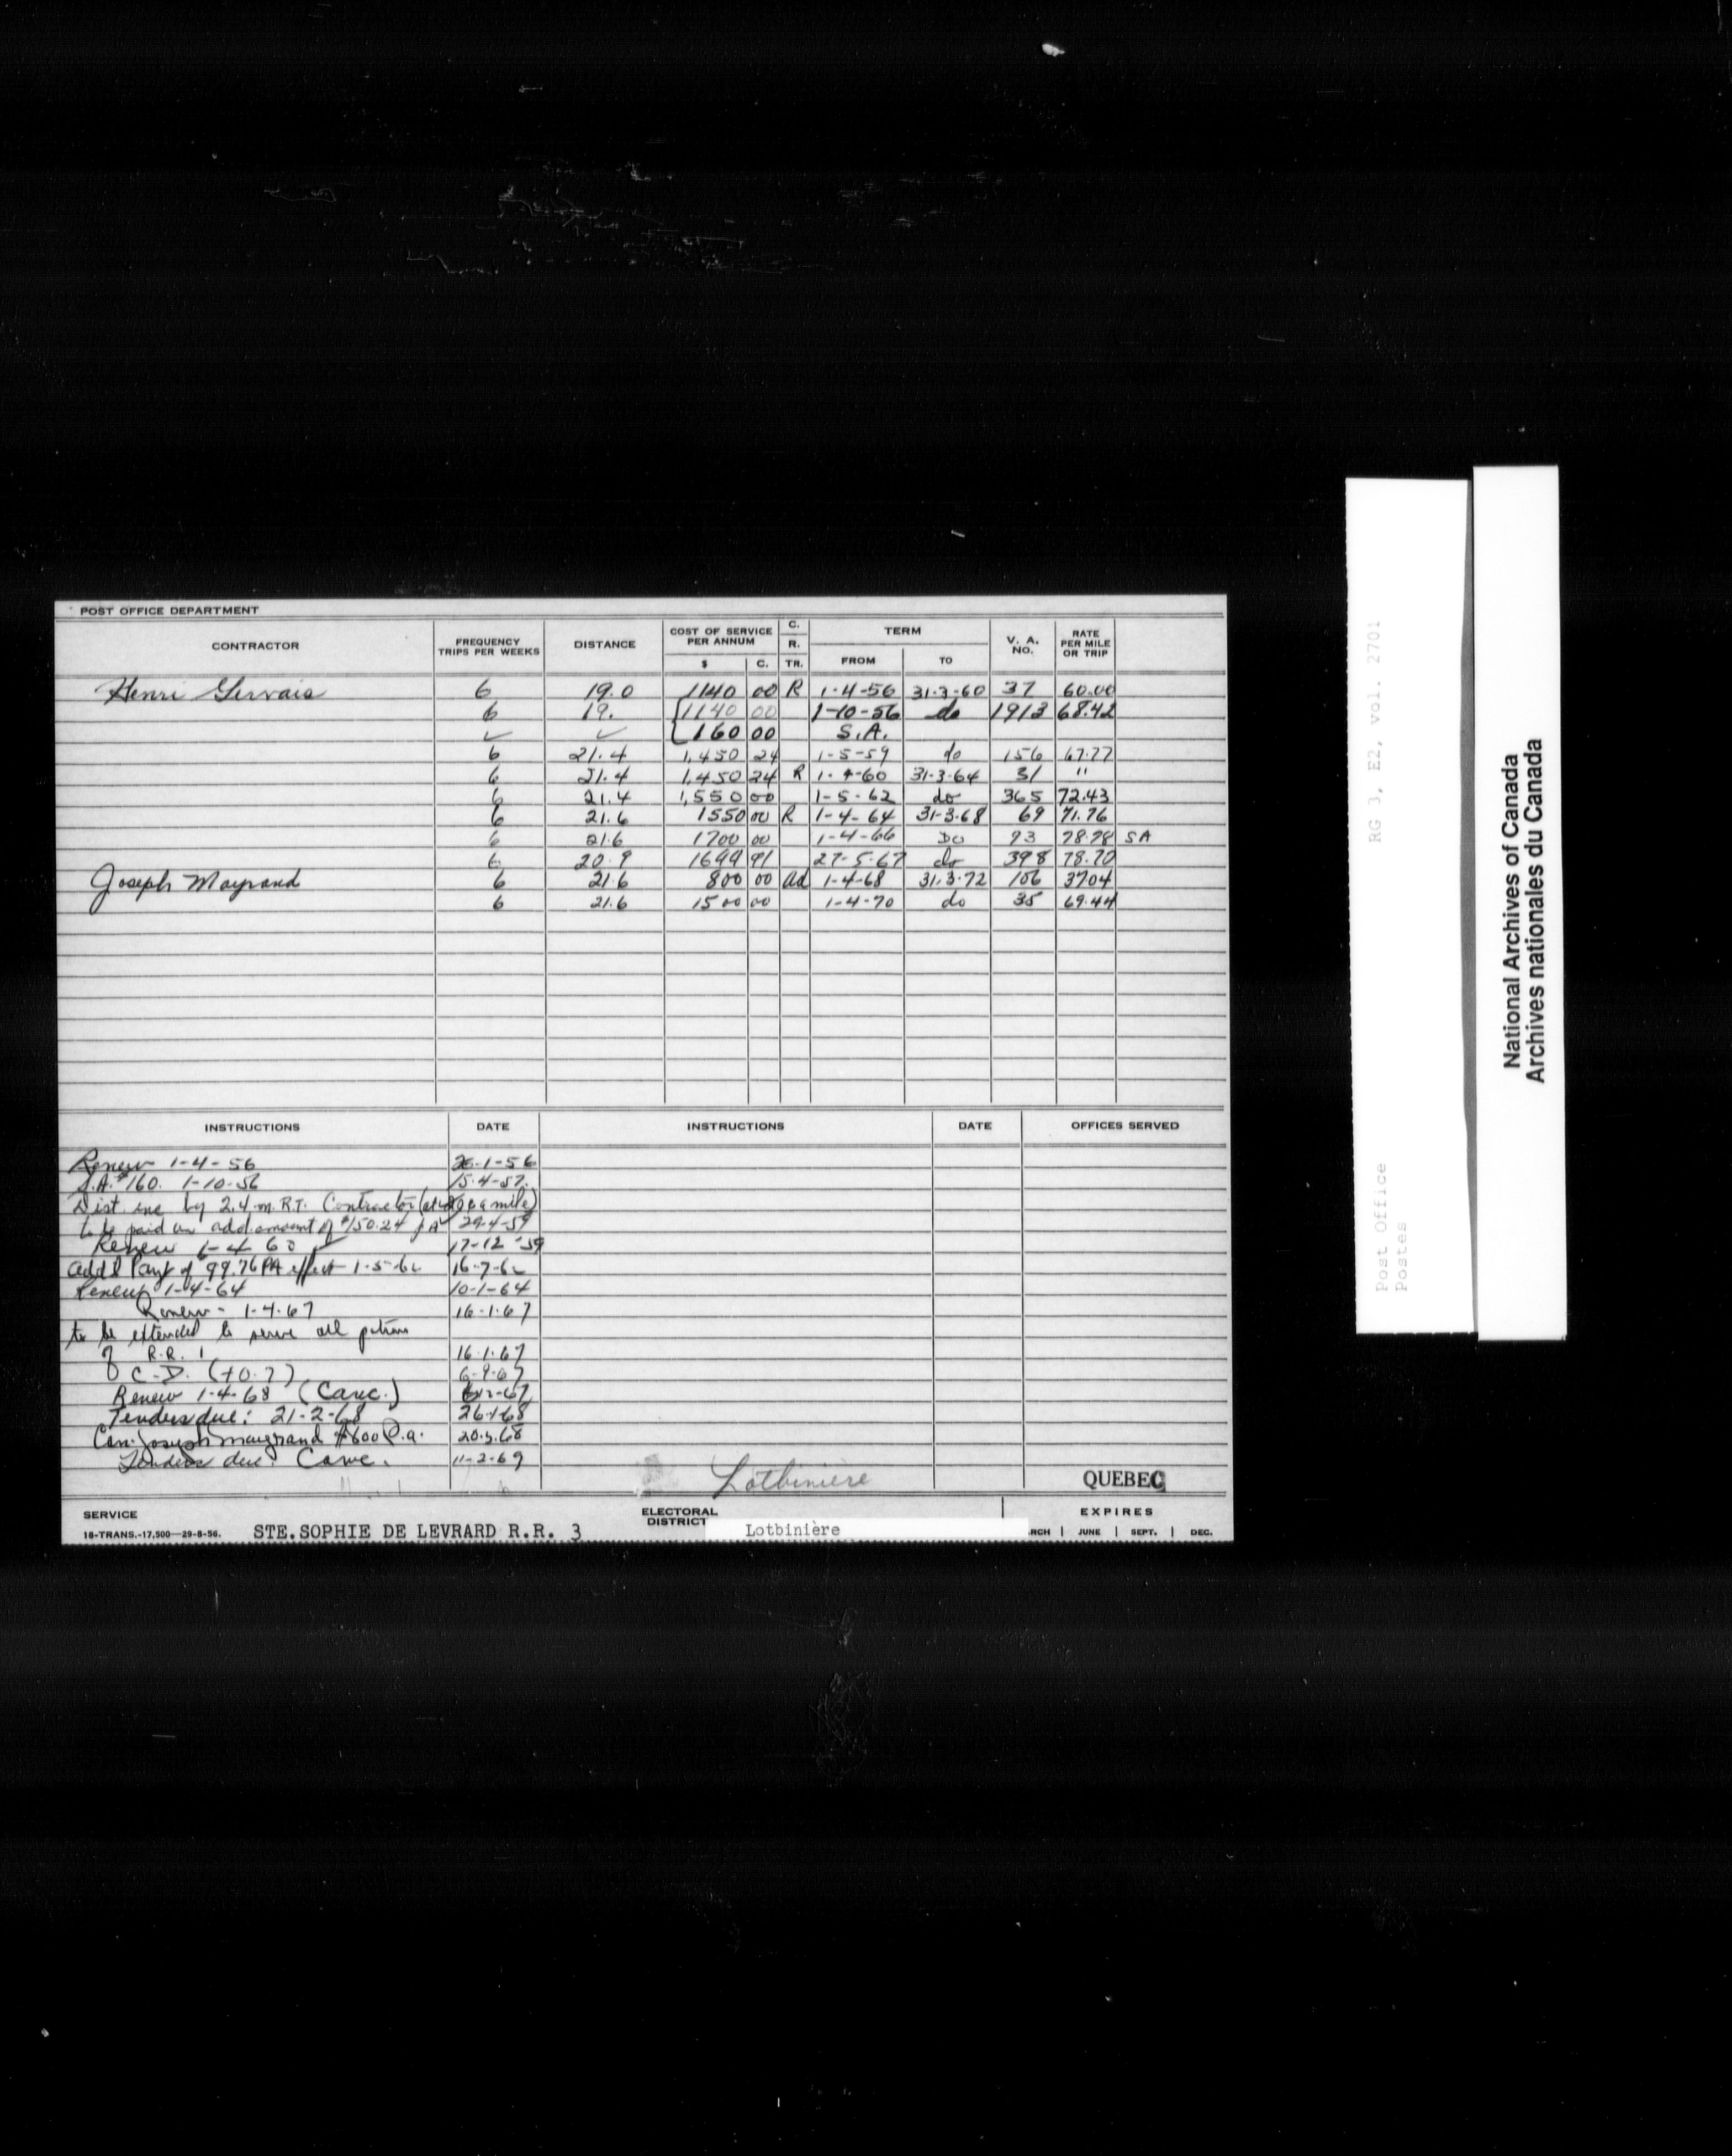 POST OFFICE DEPARTMENT
CONTRACTOR FREQUENCY TRIPS PER WEEKS DISTANCE COST OF SERVICE PER ANNUM $ C. C. R. TR. TERM FROM TO V. A. NO. RATE PER MILE OR TRIP
Henri Gervais 6 19.0 1140 00 R 1-4-56 31-3-60 37 60.00
6 19. 1140 00 1-10-56 do 1913 68.42
✓ ✓ 160 00 S.A.
6 21.4 1,450 24 1-5-59 do 156 67.77
6 21.4 1,450 24 R 1-4-60 31-3-64 31 "
6 21.4 1,550 00 1-5-62 do 365 72.43
6 21.6 1550 00 R 1-4-64 31-3-68 69 71.76
6 21.6 1700 00 1-4-66 Do 93 78.78 SA
6 20.9 1699 91 27-5-67 do 398 78.70
Joseph Mayrand 6 21.6 800 00 ad 1-4-68 31.3.72 106 3704
6 21.6 1500 00 1-4-70 do 35 69.44
INSTRUCTIONS DATE INSTRUCTIONS DATE OFFICES SERVED
Renew 1-4-56 26-1-56
S.A. $160. 1-10-56 15-4-57.
Dist. inc by 2.4 m. R.T. Contractor a mile)
to be paid an add. amount of $150.24 PA 29-4-59
Renew 1-4-60 17-12-59
Add'l Payt of 99.76 PA effect 1-5-62 16-7-62
Renew 1-4-64 10-1-64
Renew - 1-4-67 16-1-67
to be extended to serve all patrons
of R.R. 1 16.1.67
C-D. (+0.7) 6-9-67
Renew 1-4-68 (Canc.)
Tenders due: 21-2-68 26-1-68
Con. Joseph Maygrand $800 P.a. 20.3.68
Tenders due: Canc. 11-2-69
Lotbinière
QUEBEC
SERVICE ELECTORAL DISTRICT EXPIRES
18-TRANS.-17,500—29-8-56. STE.SOPHIE DE LEVRARD R.R. 3 Lotbinière RCH JUNE SEPT. DEC.
RG 3, E2, vol. 2701
Post Office
Postes
National Archives of Canada
Archives nationales du Canada